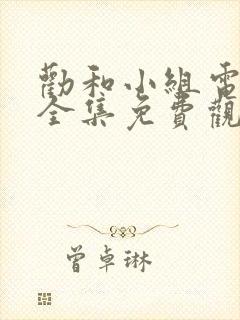 勸和小組電
全集免費觀
曾卓琳